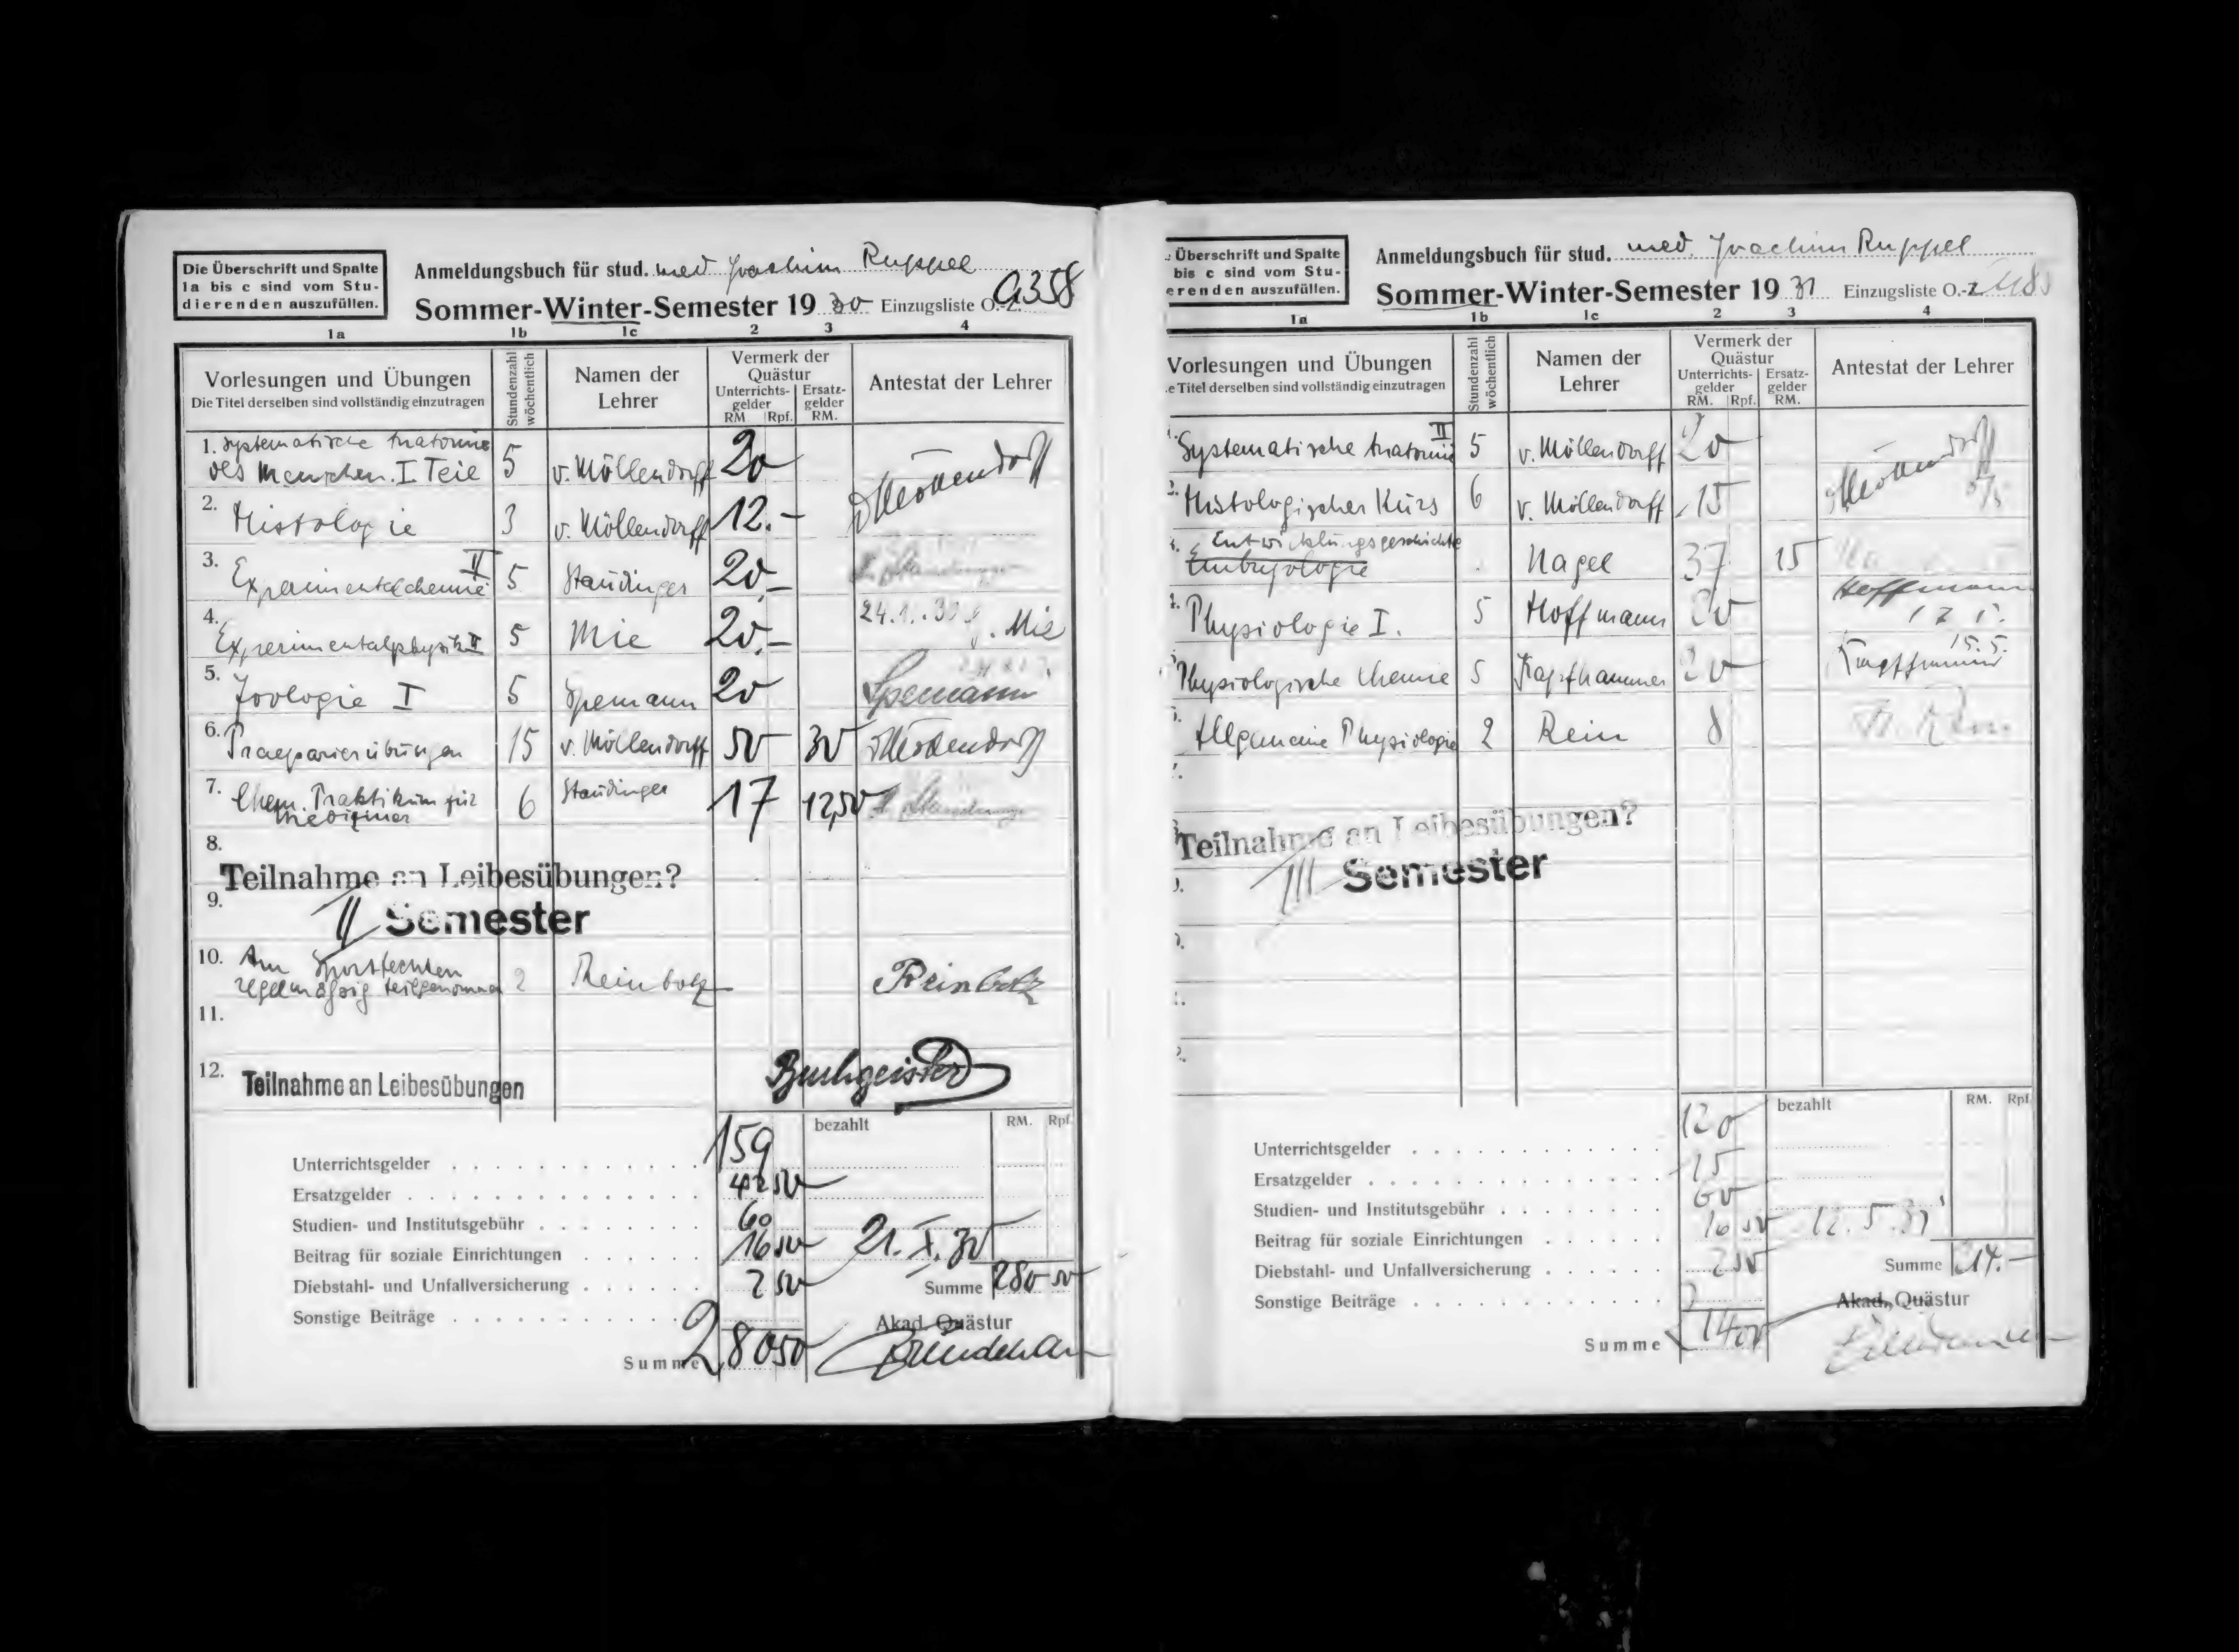 Die Überschrift und Spalte
1a bis c sind vom Stu-
dierenden auszufüllen.
Anmeldungsbuch für stud. med Joachim Ruppel
Sommer-Winter-Semester 19 30 Einzugsliste O.-Z. 9358
1a 1b 1c 2 3 4
Vorlesungen und Übungen
Die Titel derselben sind vollständig einzutragen
Stundenzahl
wöchentlich
Namen der
Lehrer
Vermerk der
Quästur
Unterrichts-
gelder
RM Rpf.
Ersatz-
gelder
RM.
Antestat der Lehrer
1. Systematische Anatomie
des Menschen. I. Teil 5 v. Möllendorff 20 vMöllendorff
2. Histologie 3 v. Möllendorff 12.-
3. Experimentalchemie II 5 Staudinger 20.- H. Staudinger
4. Experimentalphysik II 5 Mie 20.- 24.1. G. Mie
5. Zoologie I 5 Spemann 20 Spemann
6. Praeparierübungen 15 v. Möllendorff 50 30 vMöllendorff
7. Chem. Praktikum für
Mediziner 6 Staudinger 17 12,50 H. Staudinger
8.
Teilnahme an Leibesübungen?
9.
II Semester
10. Am Sportfechten
regelmäßig teilgenommen 2 Reinbolz Reinbolz
11.
12. Teilnahme an Leibesübungen Buchgeister
bezahlt RM. Rpf.
Unterrichtsgelder 159
Ersatzgelder 42 50
Studien- und Institutsgebühr 60
Beitrag für soziale Einrichtungen 16 50 21. X. 30
Diebstahl- und Unfallversicherung 2 50 Summe 280 50
Sonstige Beiträge
Akad. Quästur
Summe 280 50
Überschrift und Spalte
bis c sind vom Stu-
erenden auszufüllen.
Anmeldungsbuch für stud. med. Joachim Ruppel
Sommer-Winter-Semester 19 31 Einzugsliste O.-Z
1a 1b 1c 2 3 4
Vorlesungen und Übungen
e Titel derselben sind vollständig einzutragen
Stundenzahl
wöchentlich
Namen der
Lehrer
Vermerk der
Quästur
Unterrichts-
gelder
RM. Rpf.
Ersatz-
gelder
RM.
Antestat der Lehrer
Systematische Anatomie II 5 v. Möllendorff 20 vMöllendorff
Histologischer Kurs 6 v. Möllendorff 15
Entwicklungsgeschichte
Embryologie Nagel 37 15
Physiologie I. 5 Hoffmann 20 Hoffmann
Physiologische Chemie 5 Kapfhammer 20 15.5. Kapfhammer
Allgemeine Physiologie 2 Rein 8 Rein
Teilnahme an Leibesübungen?
III Semester
bezahlt RM. Rpf.
Unterrichtsgelder 120
Ersatzgelder 15
Studien- und Institutsgebühr 60
Beitrag für soziale Einrichtungen 16 50 12.5.31
Diebstahl- und Unfallversicherung 2 50 Summe 214.-
Sonstige Beiträge
Akad. Quästur
Summe